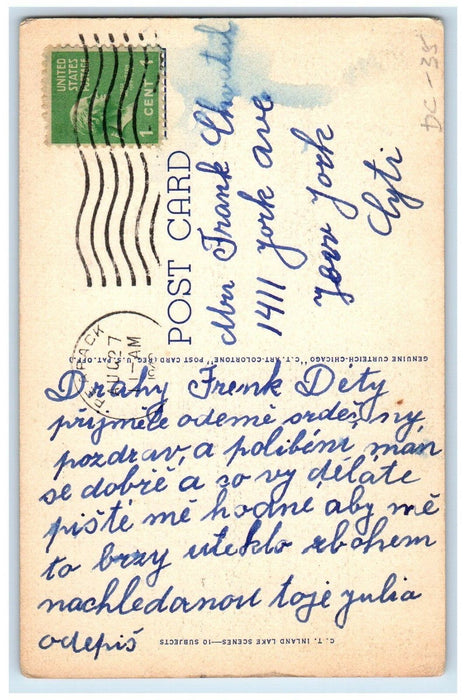 UNITED
STATES
POSTAGE
1 CENT 1
PEAPACK
AUG 27
1-AM
POST CARD
Mr Frank
1411 York ave
York
Cyti
DC-35
GENUINE CURTEICH-CHICAGO "C. T. ART-COLORTONE" POST CARD (REG. U. S. PAT. OFF.)
Drahy Frenk Děty
přijměte odemě srdečny
pozdrav a polibéni mám
se dobřě a co vy dělate
piště mě hodně aby mě
to brzy uteklo zbohem
nachledanou toje julia
odepiš
C. T. INLAND LAKE SCENES—10 SUBJECTS